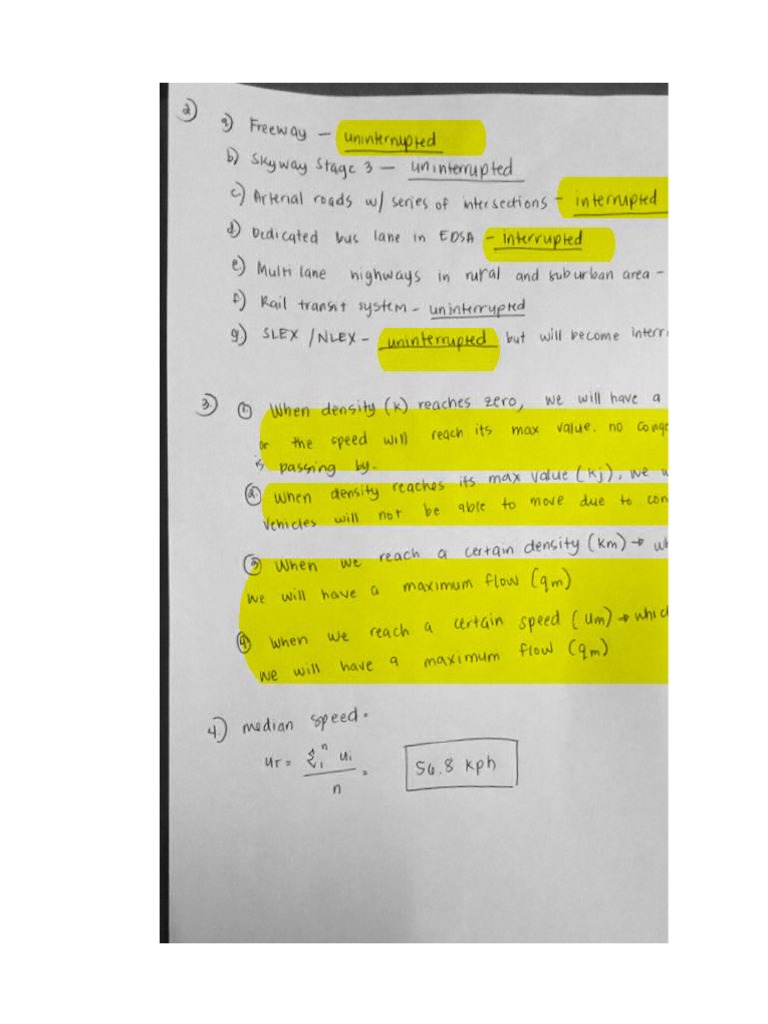 2) a) Freeway - uninterrupted
b) Skyway Stage 3 - uninterrupted
c) Arterial roads w/ series of intersections - interrupted
d) Dedicated bus lane in EDSA - interrupted
e) Multi lane highways in rural and suburban area -
f) Rail transit system - uninterrupted
g) SLEX / NLEX - uninterrupted but will become interr
3) ① When density (k) reaches zero, we will have a
or the speed will reach its max value. no conge
is passing by.
② When density reaches its max value (kj), we w
vehicles will not be able to move due to con
③ When we reach a certain density (km) → wh
we will have a maximum flow (qm)
④ When we reach a certain speed (um) → whic
we will have a maximum flow (qm)
4.) median speed =
ur = Σ₁ⁿ ui / n = 56.8 kph